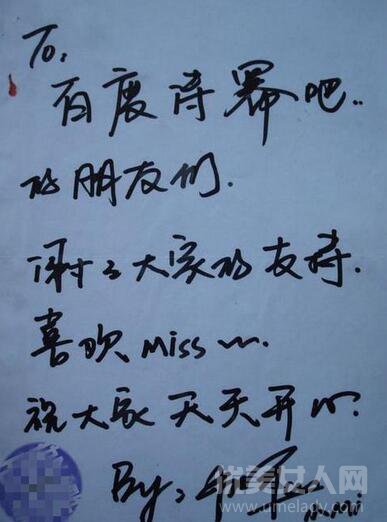 To,
百度诗幂吧..
的朋友们.
谢々大家的支持.
喜欢 Miss ~.
祝大家天天开心.
By:
优美女人网
www.umelady.com